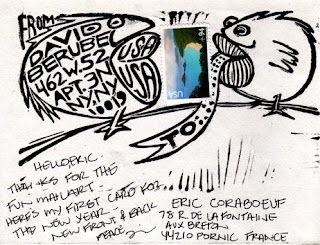 FROM
DAVID
BERUBE
462 W. 52
APT. 3N
NY. NY.
10019
USA
USA
USA
TO:
HELLO ERIC
THANKS FOR THE
FUN MAILART.
HERE'S MY FIRST CARD FOR
THE NEW YEAR.
NEW FRONT & BACK
PEACE
ERIC CORABOEUF
78 R. DE LA FONTAINE
AUX BRETON
44210 PORNIC FRANCE